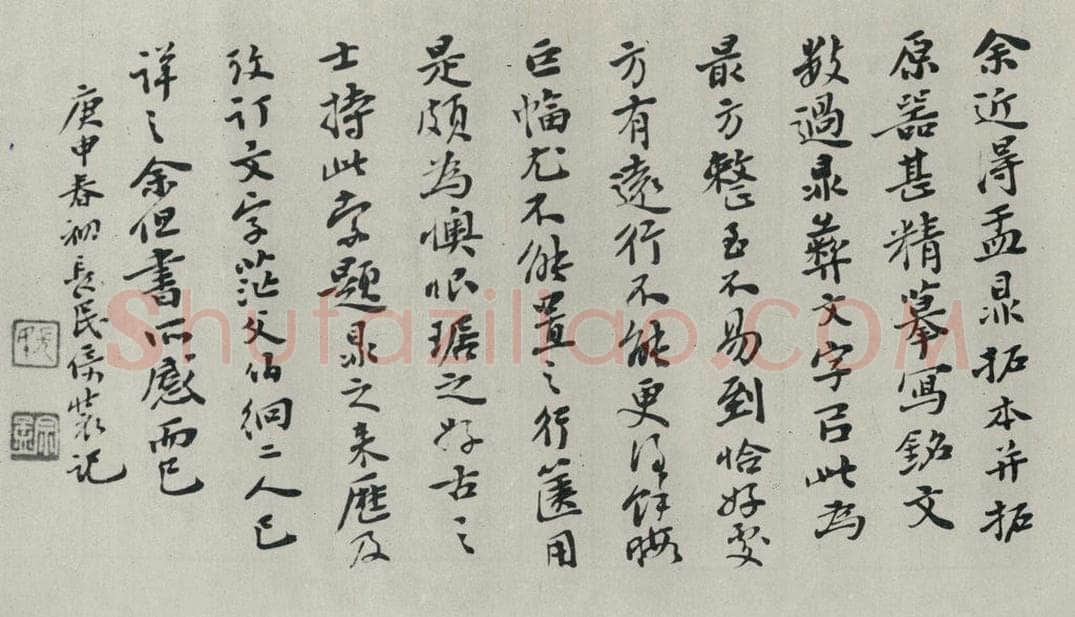 余近得盂鼎拓本并拓
原器甚精摹寫銘文
数過鼎彝文字㠯此為
最方整至不易到恰好處
方有遠行不能更得餘暇
巨幅尤不能置之行篋用
是頗為懊恨琚之好古之
士持此索題鼎之来歷及
攷訂文字茫父伯絅二人已
詳之余但書所感而已
庚申春初長民俟裝記
Shufaziliao.COM